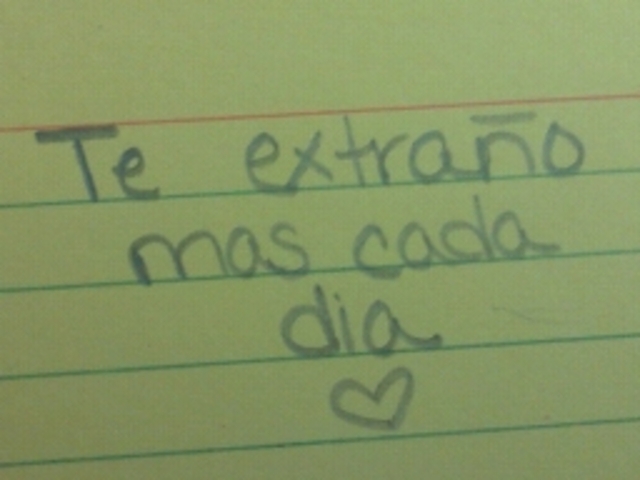 Te extraño
mas cada
dia